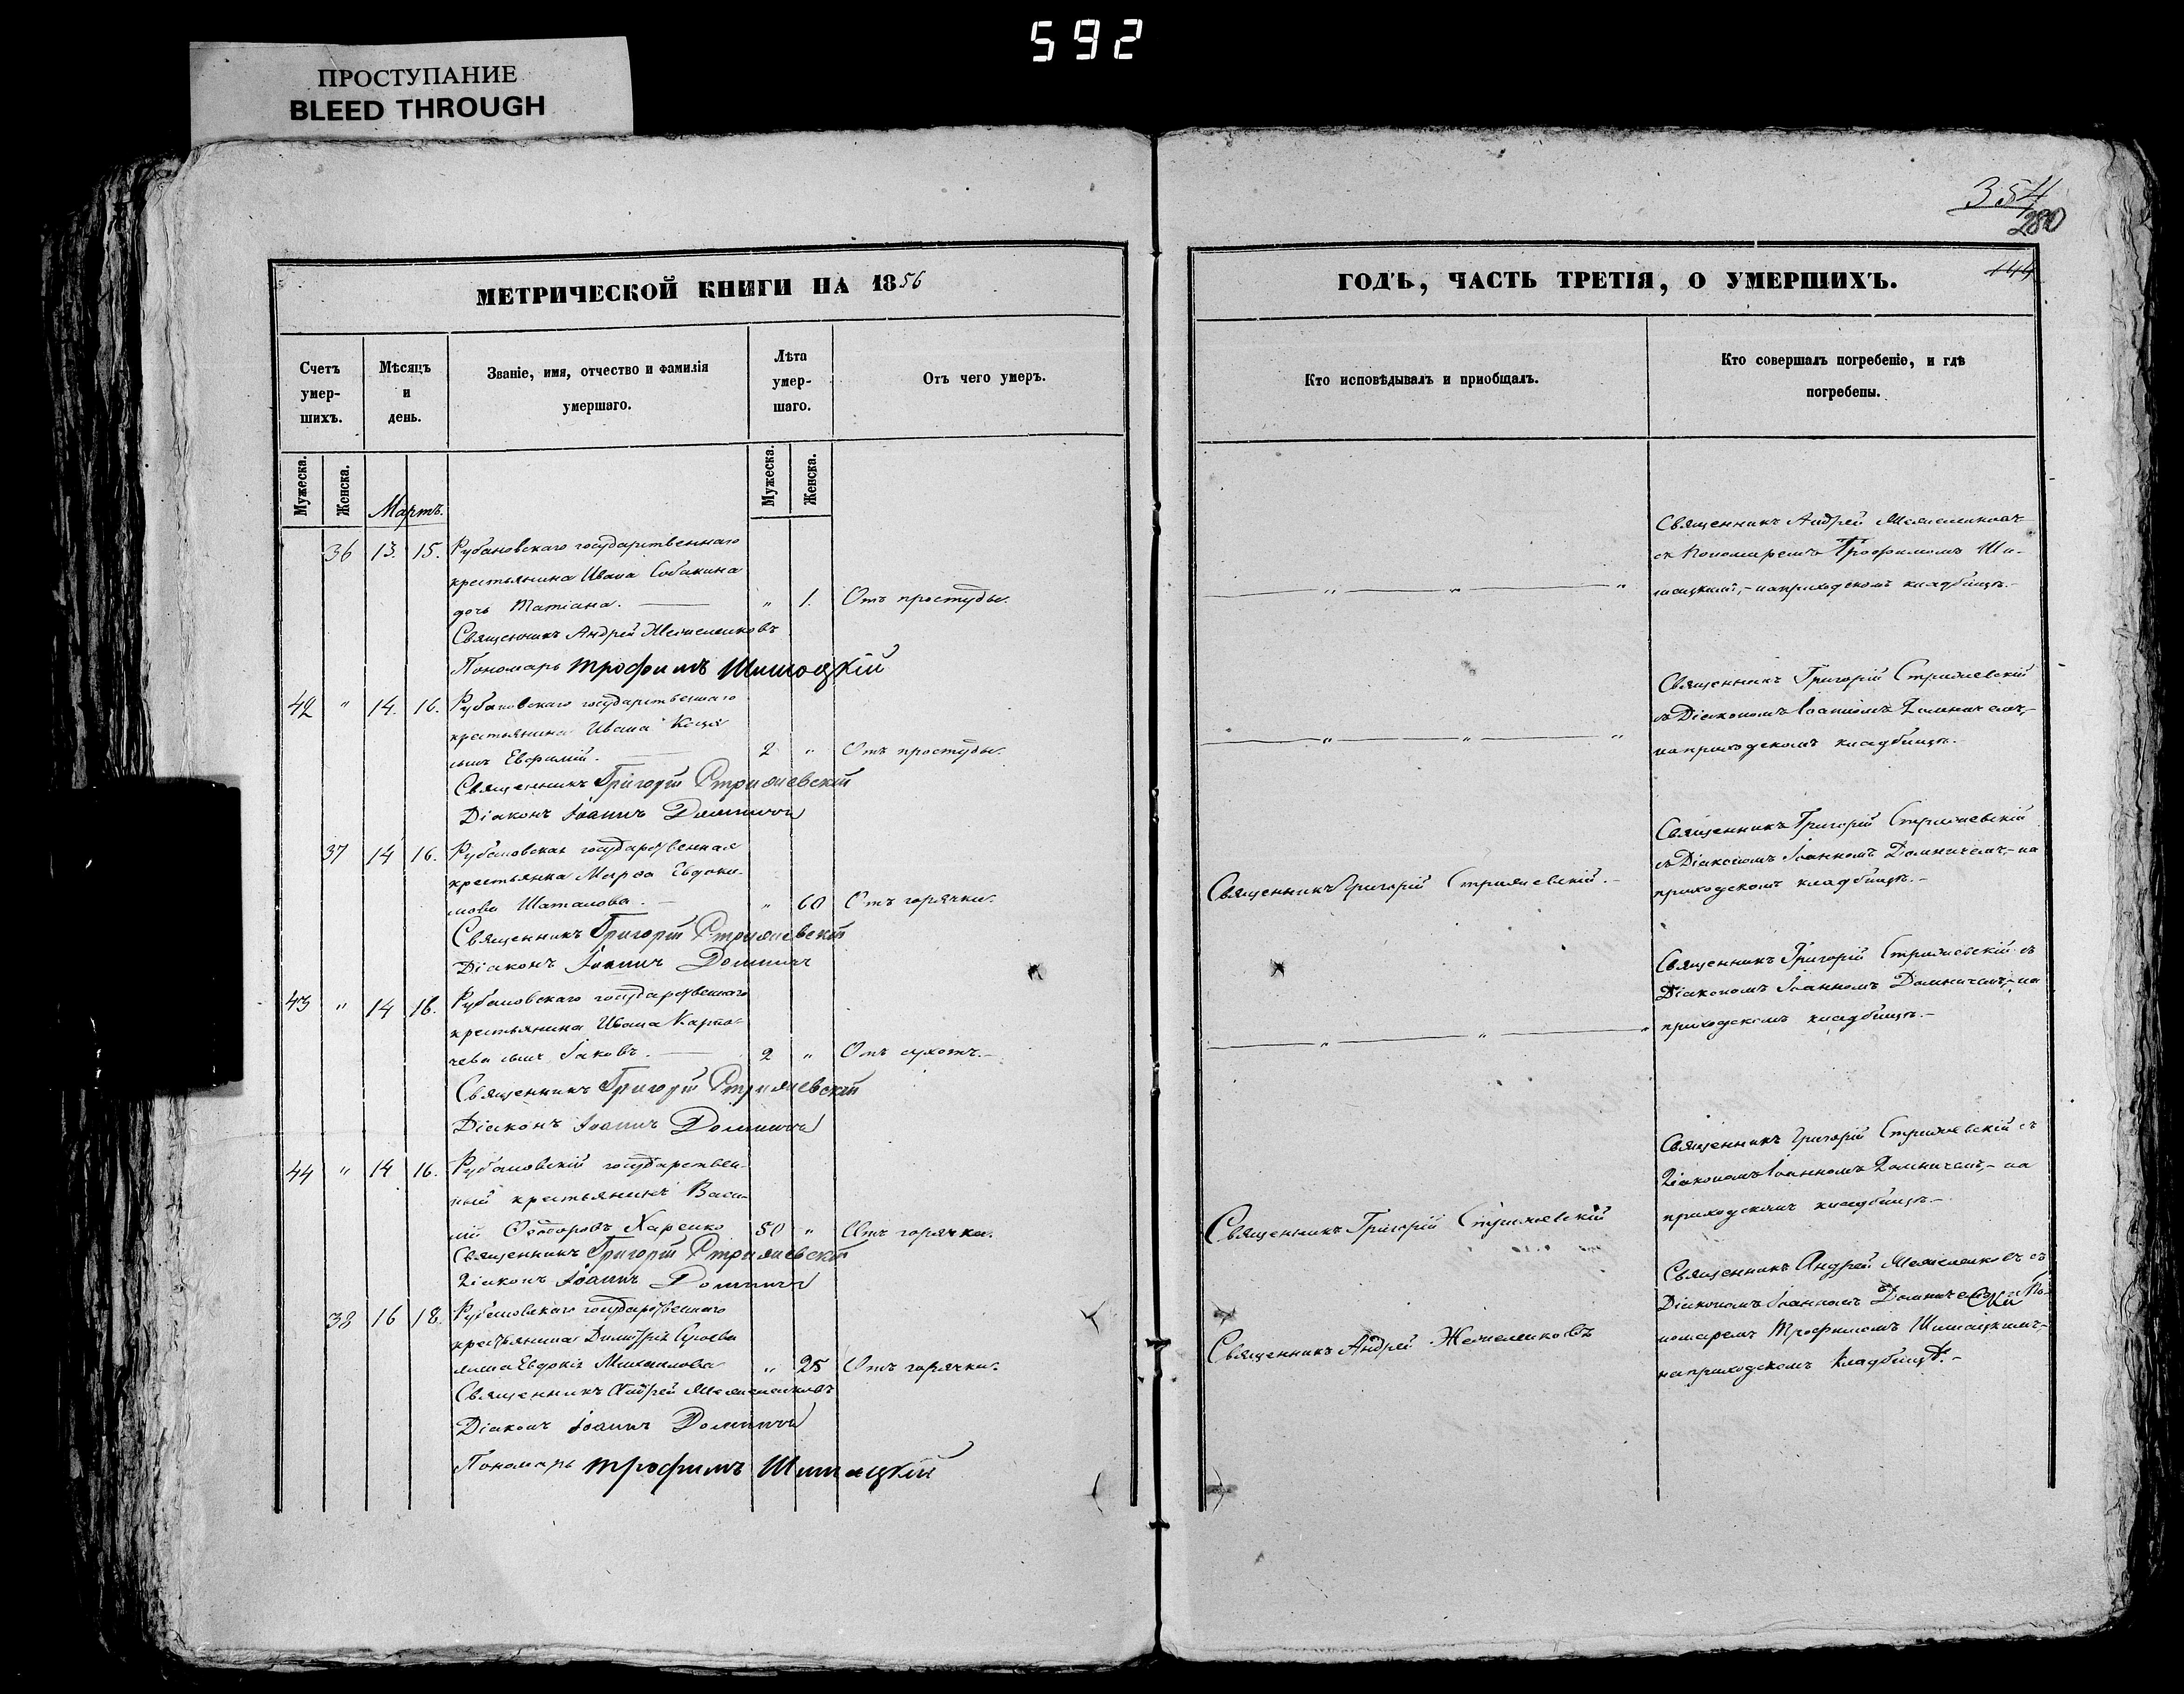 592
ПРОСТУПАНИЕ
BLEED THROUGH
354
280
144
МЕТРИЧЕСКОЙ КНИГИ НА 1856
Счетъ умер-шихъ.
Мѣсяцъ и день.
Званіе, имя, отчество и фамилія умершаго.
Лѣта умер-шаго.
Отъ чего умеръ.
Мужеска.
Женска.
Мартъ.
Мужеска.
Женска.
36 13. 15. Рубановскаго государственнаго
крестьянина Ивана Собакина
дочь Татіана. „ 1. Отъ простуды.
Священникъ Андрей
Пономарь Трофимъ Шишацкій
42 „ 14. 16. Рубановскаго государственнаго
крестьянина Ивана
сынъ Евфимій. 2 „ Отъ простуды.
Священникъ Григорій Стрижевскій
Діаконъ Іоаннъ Домничъ
37 14 16. Рубановская государственная
крестьянка Марѳа Евдоки-
мова Шаталова. „ 60 Отъ горячки.
Священникъ Григорій Стрижевскій
Діаконъ Іоаннъ Домничъ
43 „ 14 16. Рубановскаго государственнаго
крестьянина Ивана
сынъ Іаковъ. 2 „ Отъ сухотъ.
Священникъ Григорій Стрижевскій
Діаконъ Іоаннъ Домничъ
44 „ 14 16. Рубановскій государствен-
ный крестьянинъ Васи-
лій Ѳеодоровъ Харенко 50 „ Отъ горячки.
Священникъ Григорій Стрижевскій
Діаконъ Іоаннъ Домничъ
38 16 18. Рубановскаго государственнаго
крестьянина Димитрія
жена Евдокія Михайлова „ 25 Отъ горячки.
Священникъ Андрей
Діаконъ Іоаннъ Домничъ
Пономарь Трофимъ Шишацкій
ГОДЪ, ЧАСТЬ ТРЕТІЯ, О УМЕРШИХЪ.
Кто исповѣдывалъ и приобщалъ.
Кто совершалъ погребеніе, и гдѣ
погребены.
Священникъ Андрей
съ Пономаремъ Трофимомъ Ши-
шацкимъ,- на приходскомъ кладбищѣ.-
Священникъ Григорій Стрижевскій
съ Діакономъ Іоанномъ Домничемъ,-
на приходскомъ кладбищѣ.-
Священникъ Григорій Стрижевскій.-
Священникъ Григорій Стрижевскій
съ Діакономъ Іоанномъ Домничемъ,- на
приходскомъ кладбищѣ.-
Священникъ Григорій Стрижевскій съ
Діакономъ Іоанномъ Домничемъ,- на
приходскомъ кладбищѣ.-
Священникъ Григорій Стрижевскій
Священникъ Григорій Стрижевскій съ
Діакономъ Іоанномъ Домничемъ,- на
приходскомъ кладбищѣ.-
Священникъ Андрей
Священникъ Андрей съ
Діакономъ Іоанномъ Домничемъ и По-
номаремъ Трофимомъ Шишацкимъ,-
на приходскомъ кладбищѣ.-